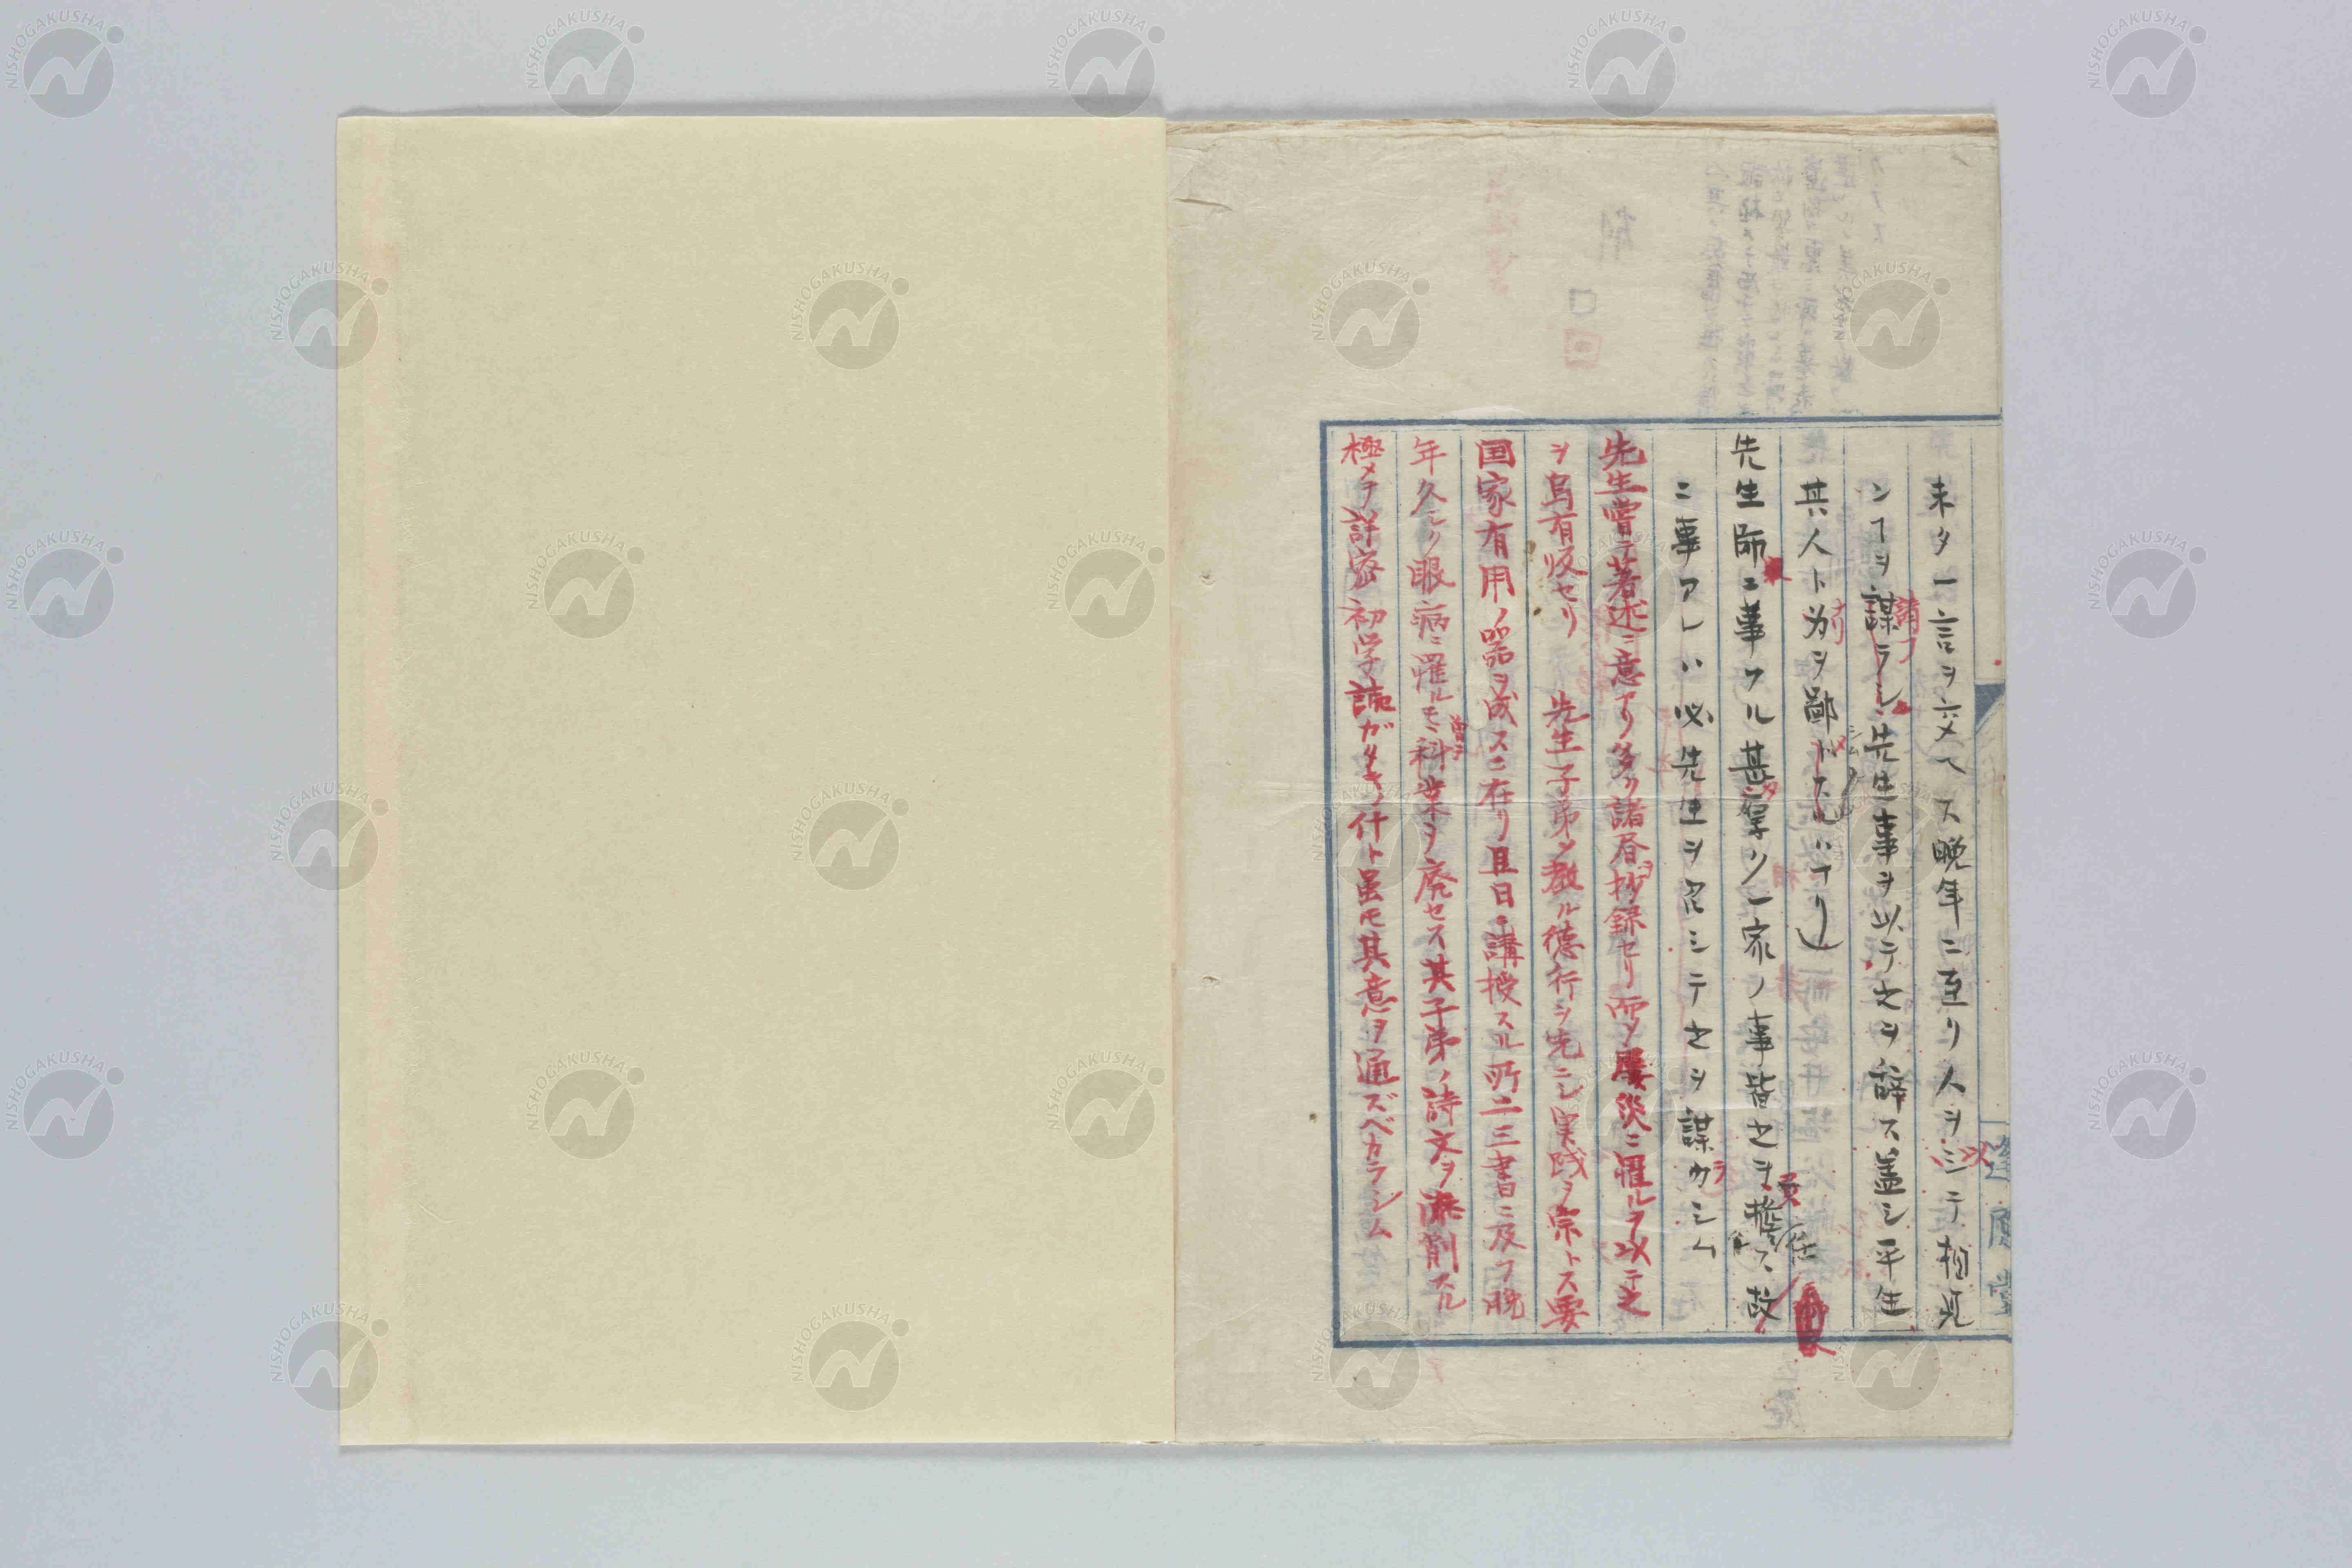 未タ一言ヲ交ヘス晩年ニ至リ人ヲシテ相見
ンヿヲ謀ラシ先生事ヲ以テ之ヲ辞ス蓋シ平生
請フ
其人ト為ヲ鄙トスレハナリ
先生師ニ事フル甚厚ク一家ノ事皆之ヲ擔ス故
任
ニ事アレハ必先生ヲ召シテ之ヲ謀カシム
ラ
先生嘗テ著述ニ意アリ多ク諸書抄録セリ而シテ屢災ニ罹ルヲ以テ之
ヲ
ヲ烏有皈セリ 先生子弟ヲ教ル徳行ヲ先ニシ実践ヲ宗トス要
国家有用ノ器ヲ成スニ在リ且日々講授スル所二三書ニ及フ晩
年久シク眼病ニ罹ルモ科業ヲ廃セス其子弟ノ詩文ヲ添削スル
曽テ
極メテ詳密初学読ガタキ什ト虽モ其意ヲ通ズベカラシム
逢原堂
NISHOGAKUSHA